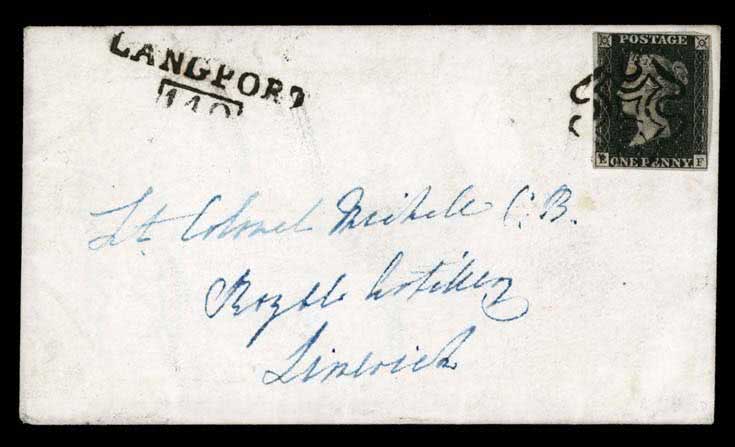 LANGPORT
140
POSTAGE
ONE PENNY
F
Lt Colonel Michell C.B.
Royal Artillery
Limerick